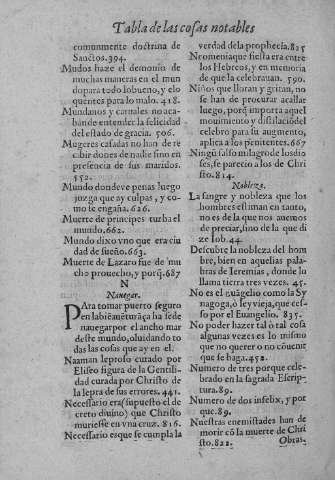 Tabla de las cosas notables
comunmente doctrina de
Sanctos.394.
Mudos haze el demonio de
muchas maneras en el mun
do para todo lo bueno, y elo
quentes para lo malo. 418.
Mundanos y carnales no aca-
bān de entender la felicidad
del estado de gracia. 506.
Mugeres casadas no han de re
cibir dones de nadie sino en
presencia de sus maridos.
552.
Mundo donde ve penas luego
juzga que ay culpas, y co-
mo te engaña. 626.
Muerte de principes turba el
mundo.662.
Mundo dixo vno que era ciu
dad de sueño.663.
Muerte de Lazaro fue de mu
cho prouecho, y porq̃.687
N
Nauegar.
PAra tomar puerto seguro
en la biēauēturāça ha se de
nauegar por el ancho mar
deste mundo, oluidando to
das las cosas que ay en el.
Naaman leproso curado por
Eliseo figura de la Gentili-
dad curada por Christo de
la lepra de sus errores. 441.
Necessario era (supuesto el de
creto diuino) que Christo
muriesse en vna cruz. 816.
Necessario es que se cumpla la
verdad de la prophecia.825
Neomenia que fiesta era entre
los Hebreos, y en memoria
de que la celebrauan. 590.
Niños que lloran y gritan, no
se han de procurar acallar
luego, porq̃ importa aquel
mouimiento y distilaciō del
celebro para su augmento,
aplica a los penitentes.667
Ningũ falso milagro de los dio
ses, se parecio a los de Chri
sto.814.
Nobleza.
La sangre y nobleza que los
hombres estiman en tanto,
no es de la que nos auemos
de preciar, sino de la que di
ze Iob.44.
Descubre la nobleza del hom
bre, bien en aquellas pala-
bras de Ieremias, donde lo
llama tierra tres vezes. 45.
No es el Euāgelio como la Sy
nagoga, o ley vieja, que ces-
so por el Euangelio. 835.
No poder hazer tal o tal cosa
algunas vezes es lo mismo
que no querer o no cōuenir
que se haga.452.
Numero de tres porque cele-
brado en la sagrada Escrip-
tura.89.
Numero de dos infelix, y por
que.89.
Nuestras enemistades han de
morir cō la muerte de Chri
sto.822.
Obras.